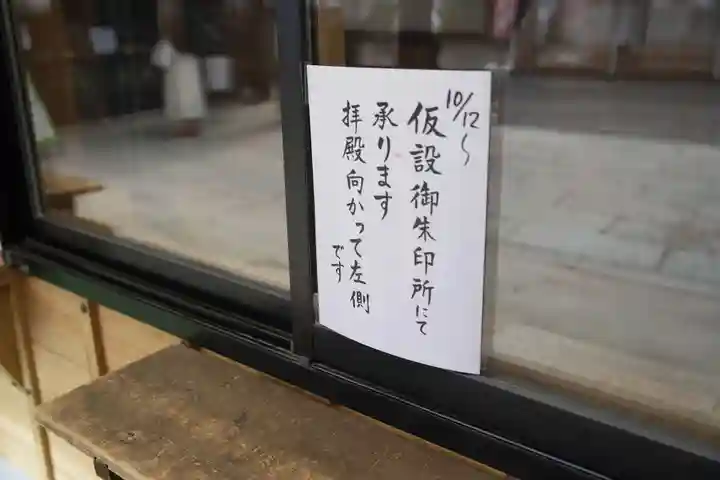 10/12〜
仮設御朱印所にて
承ります
拝殿向かって左側
です